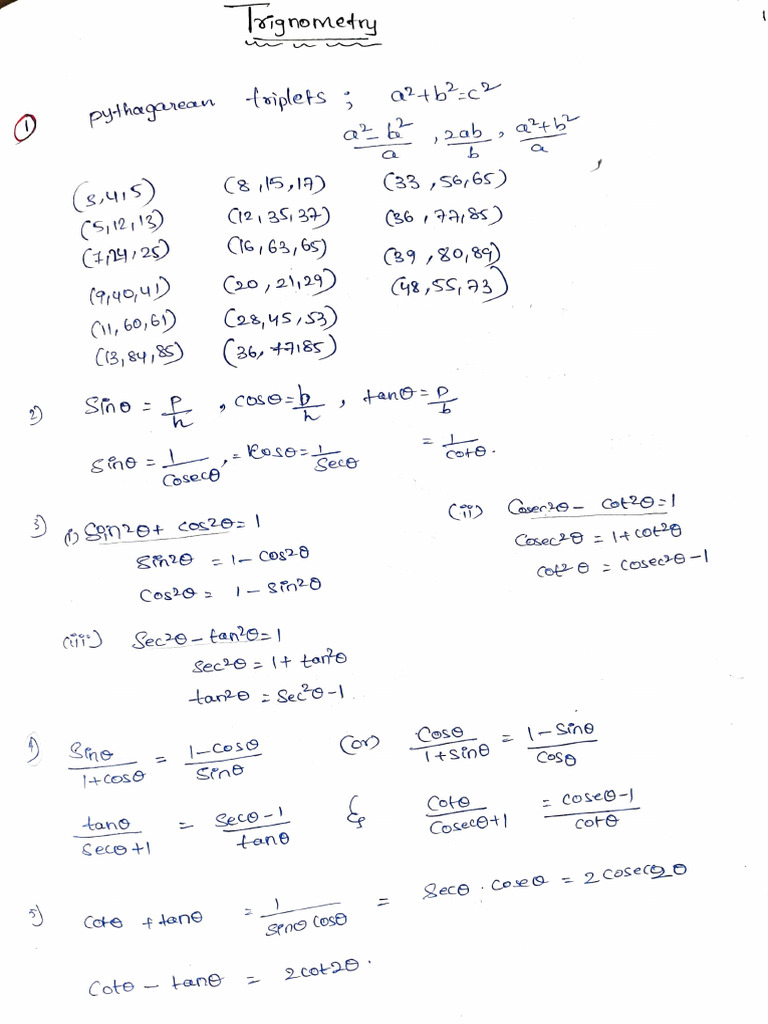 Trignometry
1
① pythagarean triplets ; a²+b²=c²
a²-b²/a , 2ab/b , a²+b²/a
(3,4,5) (8,15,17) (33,56,65)
(5,12,13) (12,35,37) (36,77,85)
(7,24,25) (16,63,65) (39,80,89)
(9,40,41) (20,21,29) (48,55,73)
(11,60,61) (28,45,53)
(13,84,85) (36,77,85)
2) Sinθ = p/h , cosθ = b/h , tanθ = p/b
Sinθ = 1/Cosecθ , = Cosθ = 1/Secθ = 1/cotθ.
3) (i) Sin2θ + cos2θ = 1 (ii) Cosec2θ - cot2θ = 1
Sin2θ = 1 - cos2θ Cosec2θ = 1 + cot2θ
Cos2θ = 1 - sin2θ cot2θ = cosec2θ - 1
(iii) Sec2θ - tan2θ = 1
Sec2θ = 1 + tan2θ
tan2θ = Sec2θ - 1
4) Sinθ/1+cosθ = 1-cosθ/Sinθ (or) Cosθ/1+sinθ = 1-Sinθ/Cosθ
tanθ/Secθ+1 = Secθ-1/tanθ & Cotθ/Cosecθ+1 = coseθ-1/cotθ
5) Cotθ + tanθ = 1/Sinθ Cosθ = Secθ . Coseθ = 2 Cosec2θ
Cotθ - tanθ = 2cot2θ.